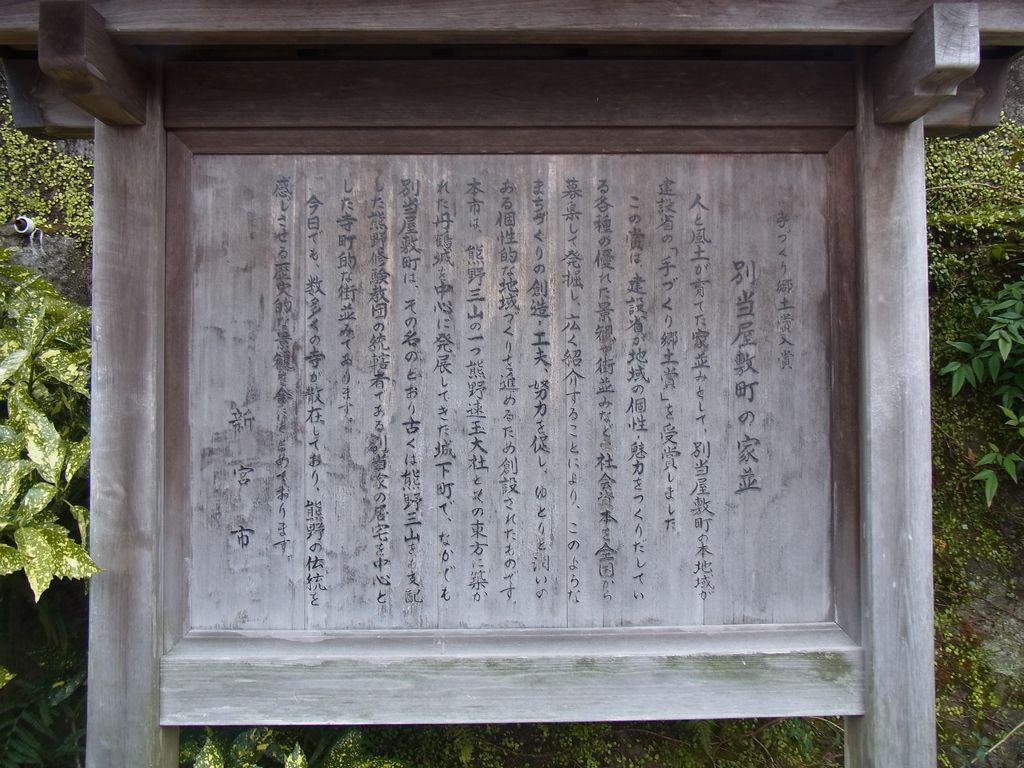 手づくり郷土賞入賞
別当屋敷町の家並
人と風土が育てた家並みとして、別当屋敷町の本地域が
建設省の「手づくり郷土賞」を受賞しました。
この賞は、建設省が地域の個性・魅力をつくりだしてい
る各種の優れた景観、街並みなどを社会資本を全国から
募集して発掘し、広く紹介することにより、このような
まちづくりの創造・工夫、努力を促し、ゆとりと潤いの
ある個性的な地域づくりを進めるため創設されたものです。
本市は、熊野三山の一つ熊野速玉大社とその東方に築か
れた丹鶴城を中心に発展してきた城下町で、なかでも
別当屋敷町は、その名のとおり古くは熊野三山をも支配
した熊野修験教団の統轄者である別当家の居宅を中心と
した寺町的な街並みであります。
今日でも、数多くの寺が散在しており、熊野の伝統を
感じさせる歴史的な景観を今にとどめております。
新宮市